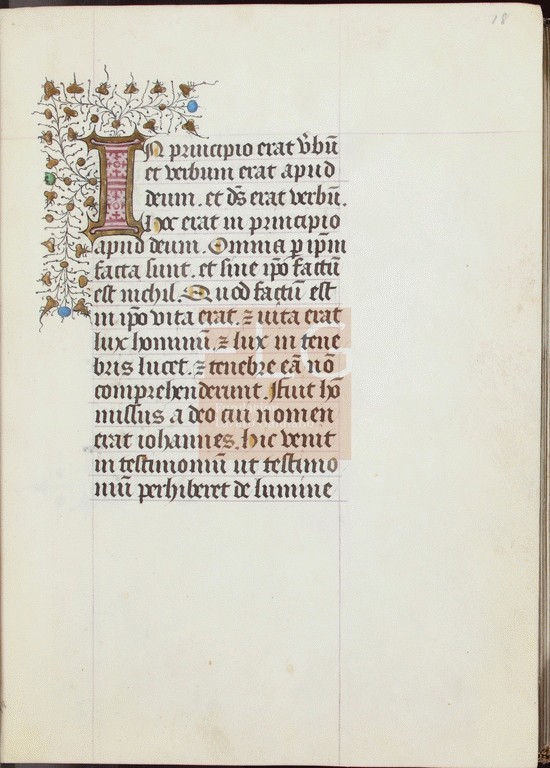 18
IN principio erat v̄bū
et verbum erat apud
deum. et ds̄ erat verbū.
Hoc erat in principio
apud deum. Omnia ꝑ ip̄m
facta sunt. et sine ip̄o factū
est nichil. Quod factū est
in ip̄o vita erat. ⁊ vita erat
lux hominū. ⁊ lux in tene
bris lucet. ⁊ tenebre eā nō
comprehenderunt. Fuit hō
missus a deo cui nomen
erat iohannes. hic venit
in testimoniū ut testimo
niū perhiberet de lumine